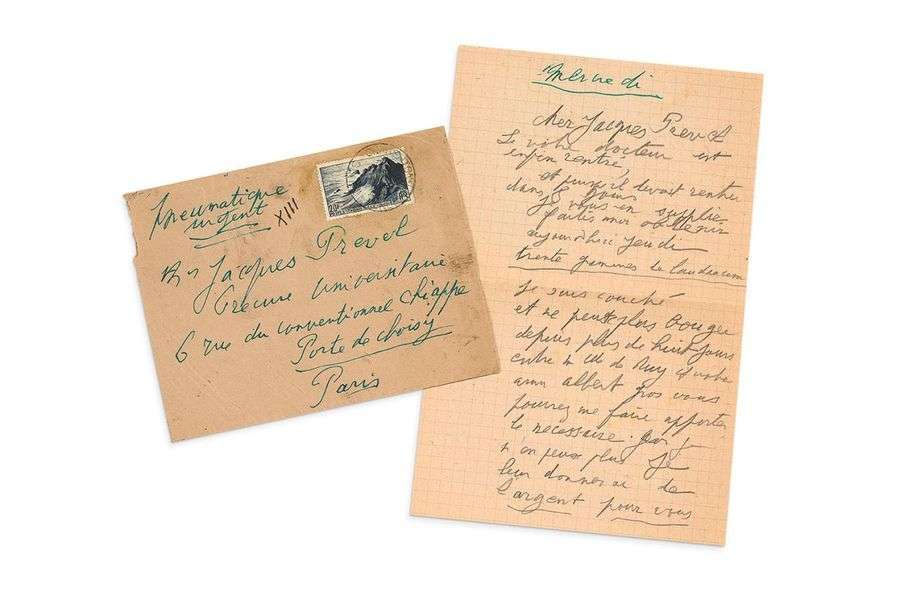 Pneumatique
urgent
XIII
Mr Jacques Prevel
Précure Universitaire
6 rue du conventionnel Chiappe
Porte de Choisy
Paris
Mercredi
cher Jacques Prevel
Si votre docteur est
enfin rentré,
et puisqu'il devait rentrer
dans
Je vous en supplie
faites moi obtenir
aujourd'hui jeudi
trente grammes de laudanum
Je suis couché
et ne peux plus bouger
depuis plus de huit jours
entre
ami albert vous
pourrez me faire apporter
le nécessaire. car je
n'en peux plus Je
leur donnerai de
l'argent pour vous